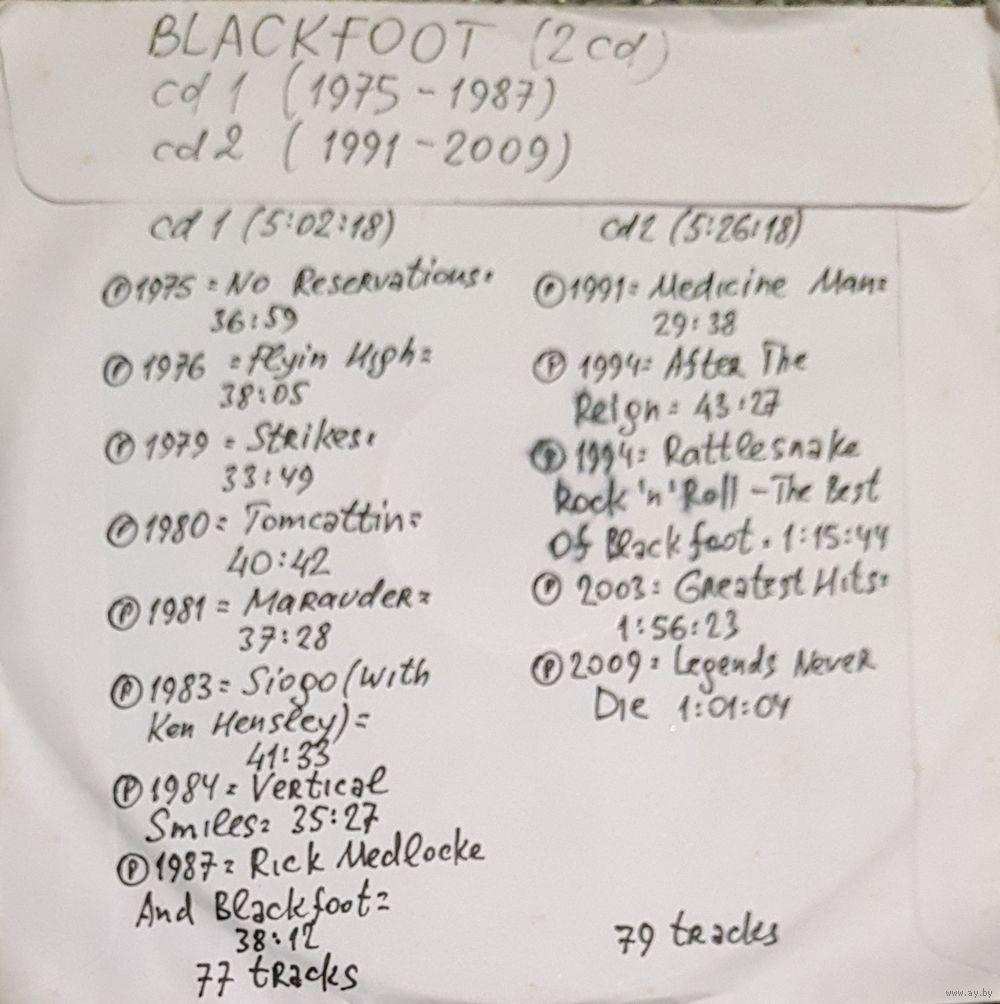 BLACKFOOT (2cd)
cd 1 (1975 - 1987)
cd 2 (1991 - 2009)
cd 1 (5:02:18)
Ⓟ1975 = No Reservations.
36:59
Ⓟ1976 = Flyin High =
38:05
Ⓟ1979 = Strikes.
33:49
Ⓟ1980 = Tomcattin =
40:42
Ⓟ1981 = Marauder =
37:28
Ⓟ1983 = Siogo (with
Ken Hensley) =
41:33
Ⓟ1984 = Vertical
Smiles = 35:27
Ⓟ1987 = Rick Medlocke
And Blackfoot =
38:12
77 tracks
cd 2 (5:26:18)
Ⓟ1991 = Medicine Man =
29:38
Ⓟ 1994 = After The
Reign = 43:27
Ⓟ 1994 = Rattlesnake
Rock 'n' Roll - The Best
Of Blackfoot. 1:15:44
Ⓟ 2003 = Greatest Hits =
1:56:23
Ⓟ2009 = Legends Never
Die 1:01:04
79 tracks
www.ay.by